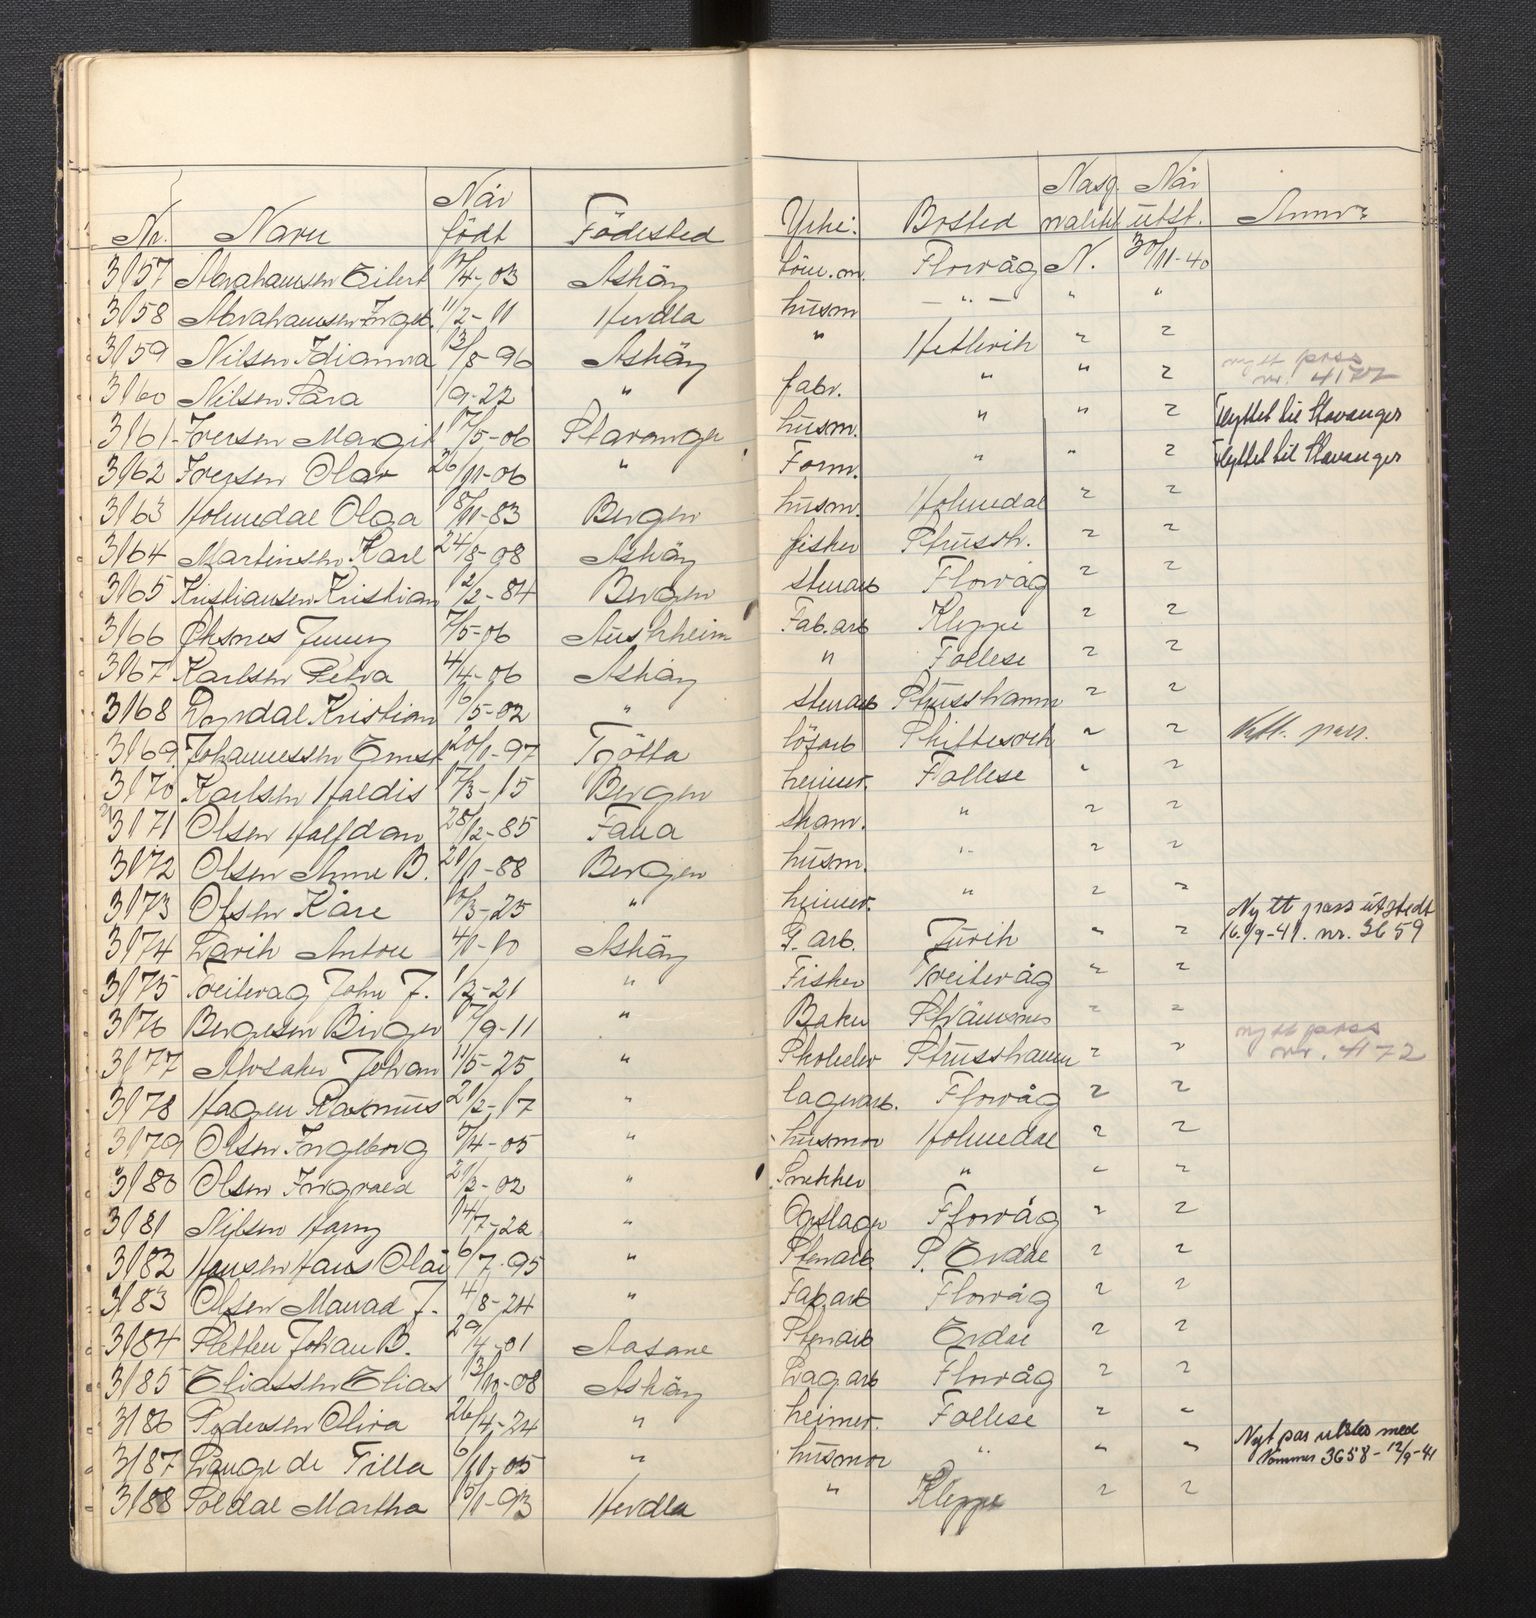 Nr. Navn Når født Födested Yrke. Bosted Nasjonalitet Når utst. Anm.
3157 Abrahamsen Eilert 17/4-03 Asköy töm.m. Florvåg N. 30/11-40
3158 Abrahamsen Ingeb. 11/2-11 Herdla husm — " — " "
3159 Nilsen Idianna 13/8-96 Asköy " Hetlevik " "
3160 Nilsen Sara 1/9-22 " fabr. " " " nytt pass nr. 4177
3161 Iversen Margit 17/5-06 Stavanger husm. " " " Flyttet til Stavanger
3162 Iversen Olav 26/11-06 " Form. " " " Flyttet til Stavanger
3163 Holmedal Olga 8/11-83 Bergen husm. Holmedal " "
3164 Martinsen Karl 24/8-08 Asköy fisker Strussh. " "
3165 Kristiansen Kristian 12/2-84 Bergen stenarb Florvåg " "
3166 Øksnes Jenny 7/5-06 Austrheim Fab.arb Kleppe " "
3167 Karlsen Petra 4/4-06 Asköy " Follese " "
3168 Kristian 16/5-02 " stenarb Strusshamn " "
3169 Johannessen Ernst 20/1-97 Tjötta lösarb Skiftesvik " " Nytt pass.
3170 Karlsen Haldis 17/3-15 Bergen heimev. Follese " "
3171 Olsen Halfdan 28/12-85 Fana skom. " " "
3172 Olsen Anne B. 21/1-88 Bergen husm. " " "
3173 Olsen Kåre 10/3-25 " heimev. " " " Nytt pass utstedt
3174 Davik Anton 4/1-10 Asköy G.arb. Juvik " " 16/9-41. nr. 3659
3175 Breitevag John J. 1/3-21 " Fisker Breitevåg " "
3176 Bergesen Birger 7/9-11 " Baker Strömsnes " "
3177 Alvsaker Johan 11/5-25 " Skoleelev Strusshamn " " nytt pass nr. 4172
3178 Hagen Rasmus 21/2-17 " lagerarb. Florvåg " "
3179 Olsen Ingeborg 5/4-05 " husmor Holmedal " "
3180 Olsen Ingvald 21/2-02 " Snekker " " "
3181 Nilsen Harry 14/7-22 " Florvåg " "
3182 Hansen Hans Olai 6/7-95 " Stenarb S. Erdal " "
3183 Olsen Manrad J. 4/8-24 " Fab.arb Florvåg " "
3184 Sletten Johan B. 29/4-01 Aasane Stenarb Erdal " "
3185 Eliassen Elias 13/10-08 Asköy Lagarb Florvåg " "
3186 Pedersen Oliva 26/4-24 " heimev. Follese " "
3187 Lange de Tilla 6/10-05 " husmor " " " Nyt pas utstes med Nommer 3658-12/9-41
3188 Soldal Martha 15/1-93 Herdla " Kleppe " "